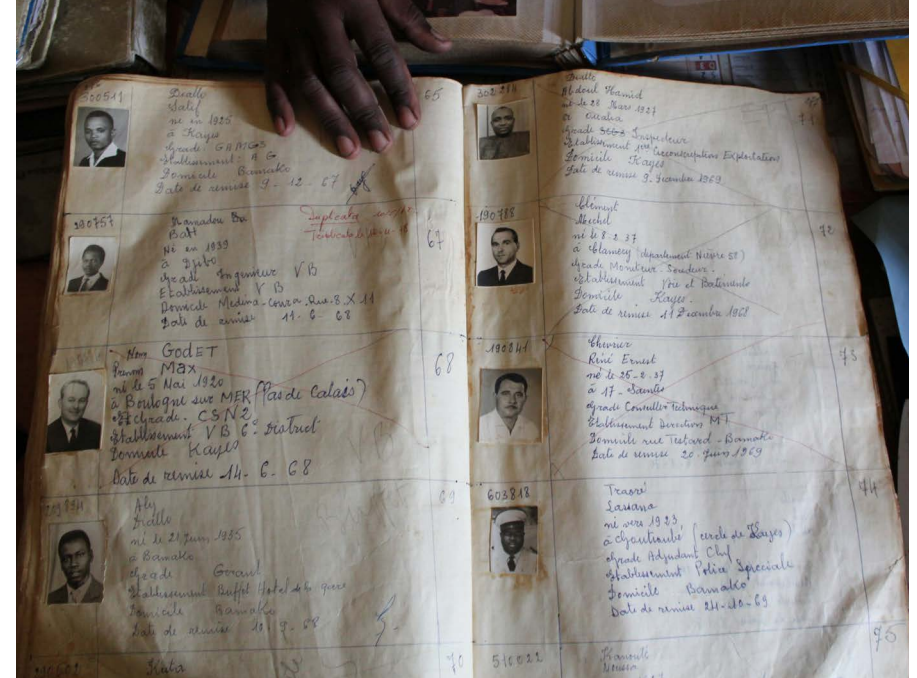 300511
65
Diallo
Salif
né en 1925
à Kayes
Grade: GAMGS
Etablissement: A G
Domicile Bamako
Date de remise 9-12-67
290757
67
Mamadou Ba
Duplicata
Né en 1939
à Djibo
Grade Ingenieur V B
Etablissement V B
Domicile Medina-coura Rue 8 X 11
Date de remise 11-6-68
68
Nom GODET
Prenom Max
né le 5 Mai 1920
à Boulogne sur MER (Pas de Calais)
Grade. CSN2
Etablissement VB 6° District
Domicile Kayes
Date de remise 14-6-68
69
Aly
Diallo
né le 21 juin 1935
à Bamako
Grade Gérant
Etablissement Buffet Hotel de la gare
Domicile Bamako
Date de remise 10-9-68
70
302214
71
Diallo
Abdoul Hamid
né le 28 Mars 1927
à
Grade Inspecteur
Etablissement 1ère Circonscriptions Exploitations
Domicile Kayes
Date de remise 9 Decembre 1969
190788
72
Clément
Michel
né le 8-2-37
à Clamecy (departement Nièvre 58)
Grade Moniteur-Soudeur.
Etablissement Voie et Batiments
Domicile Kayes.
Date de remise 11 Decembre 1968
190841
73
Chevrier
Réné Ernest
né le 25-2-37
à 17-Saintes
Grade Conseiller Technique
Etablissement Direction MT
Domicile rue Testard-Bamako
Date de remise 20 juin 1969
603818
74
Traoré
Lassana
né vers 1923
à (cercle de Kayes)
Grade Adjudant Chef
Etablissement Police Speciale
Domicile Bamako
Date de remise 24-10-69
510022
75
Kanouté
Moussa